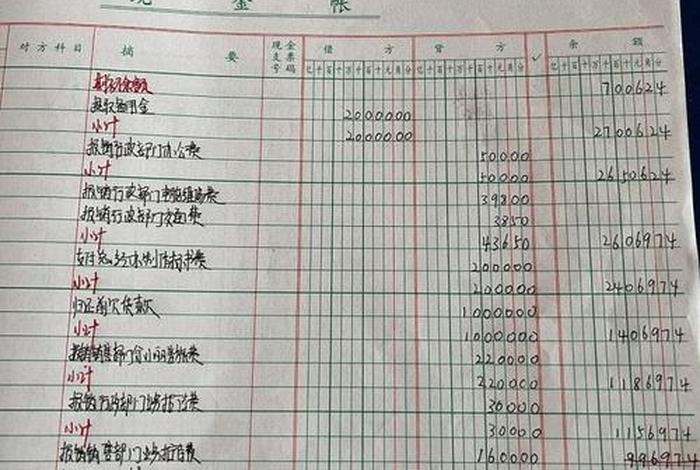 现 金 帐
对方科目 摘 要 现金支票号码 借 方 贷 方 ✓ 余 额
亿千百十万千百十元角分 亿千百十万千百十元角分 亿千百十万千百十元角分
期初余额 700624
提取备用金 2000000
小计 2000000 2700624
报销行政部门办公费 50000
小计 50000 2650624
报销行政部门 费 39800
报销行政部门交通费 3850
小计 43650 2606974
支付 标书费 200000
小计 200000 2406974
归还前欠货款 1000000
小计 1000000 1406974
报销销售部门 差旅费 220000
小计 220000 1186974
报销行政部门业务招待费 30000
小计 30000 1156974
报销销售部门业务招待费 160000 996974